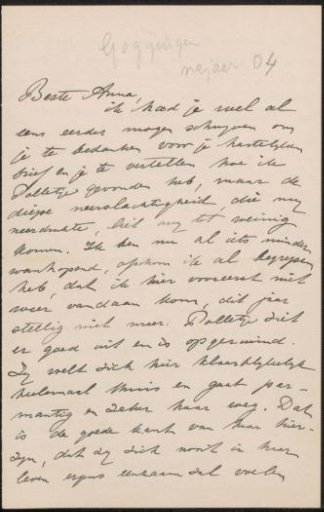 Göggingen
najaar 04
Beste Anna,
ik had je wel al
eens eerder mogen schrijven om
je te bedanken voor je hartelijken
brief en je te vertellen hoe ik
Polletje gevonden heb, maar de
diepe neerslachtigheid, die mij
neerdrukte, liet mij tot weinig
komen. Ik ben nu al iets minder
wanhopend, ik al begrepen
heb, dat ik hier vooreerst niet
weer vandaan kom, dit jaar
stellig niet meer. Polletje ziet
er goed uit en is opgeruimd.
Zij voelt zich hier klaarblijkelijk
heelemaal thuis en gaat par-
mantig en zeker haar weg. Dat
is de goede kant van haar hier-
zijn, dat zij zich nooit in haar
leven ergens eenzaam zal voelen